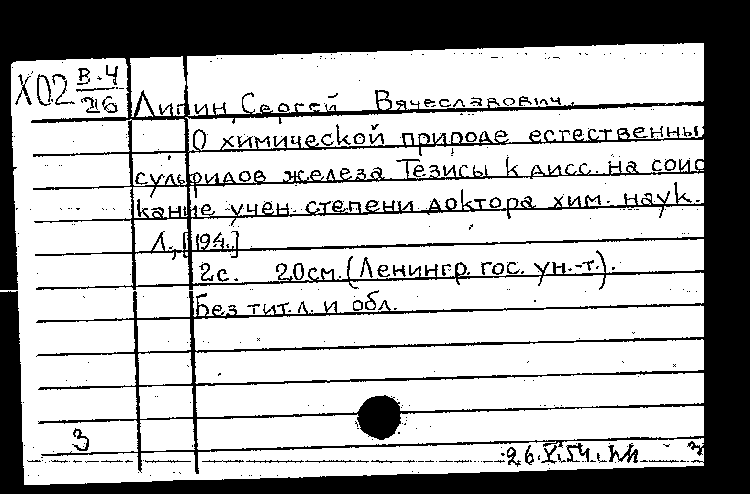 Х02 В.4
26
Липин, Сергей Вячеславович.
О химической природе естественны
сульфидов железа Тезисы к дисс. на соис
кание учен. степени доктора хим. наук.
Л., [194.]
2с. 20см. (Ленингр. гос. ун.-т.).
Без тит. л. и обл.
3
26.V.54.